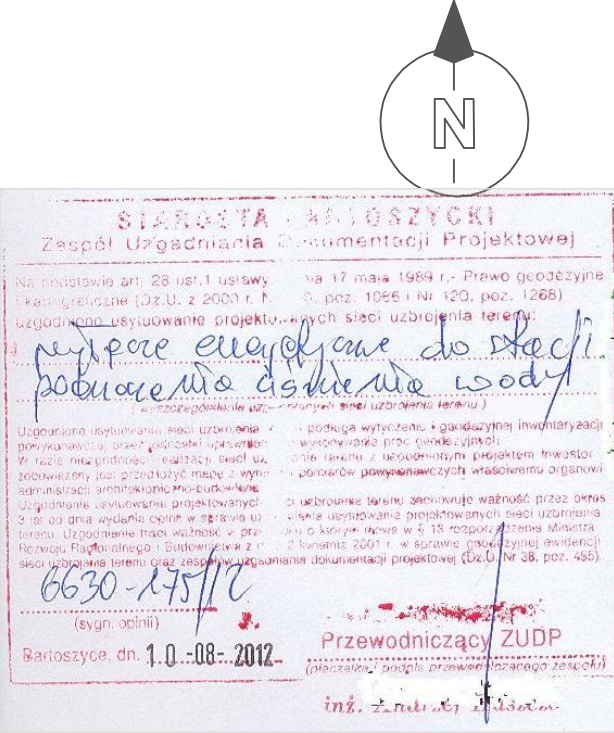 N
STAROSTA BARTOSZYCKI
Zespół Uzgadniania Dokumentacji Projektowej
Na podstawie art. 28 ust.1 ustawy z dnia 17 maja 1989 r.- Prawo geodezyjne
i kartograficzne (Dz.U. z 2000 r. poz. 1086 i Nr 120, poz. 1268)
uzgodniono usytuowanie projektowanych sieci uzbrojenia terenu:
do stacji
podnoszenia ciśnienia wody
( wyszczególnienie uzgodnionych sieci uzbrojenia terenu )
Uzgodnione usytuowanie sieci uzbrojenia podlega wytyczeniu i geodezyjnej inwentaryzacji
powykonawczej przez jednostki uprawnione wykonywania prac geodezyjnych.
W razie niezgodności realizacji sieci terenu z uzgodnionym projektem inwestor
zobowiązany jest przedłożyć mapę z pomiarów powykonawczych właściwemu organowi
administracji architektoniczno-budowlanej.
Uzgodnienie usytuowania projektowanych sieci uzbrojenia terenu zachowuje ważność przez okres
3 lat od dnia wydania opinii w sprawie usytuowania projektowanych sieci uzbrojenia
terenu. Uzgodnienie traci ważność w o którym mowa w § 13 rozporządzenie Ministra
Rozwoju Regionalnego i Budownictwa z 2 kwietnia 2001 r. w sprawie geodezyjnej ewidencji
sieci uzbrojenia terenu oraz zespołów uzgadniania dokumentacji projektowej (Dz.U. Nr 38, poz. 455).
6630-175/12
(sygn. opinii)
Przewodniczący ZUDP
Bartoszyce, dn. 10 -08- 2012
(pieczątka i podpis przewodniczącego zespołu)
inż. Andrzej